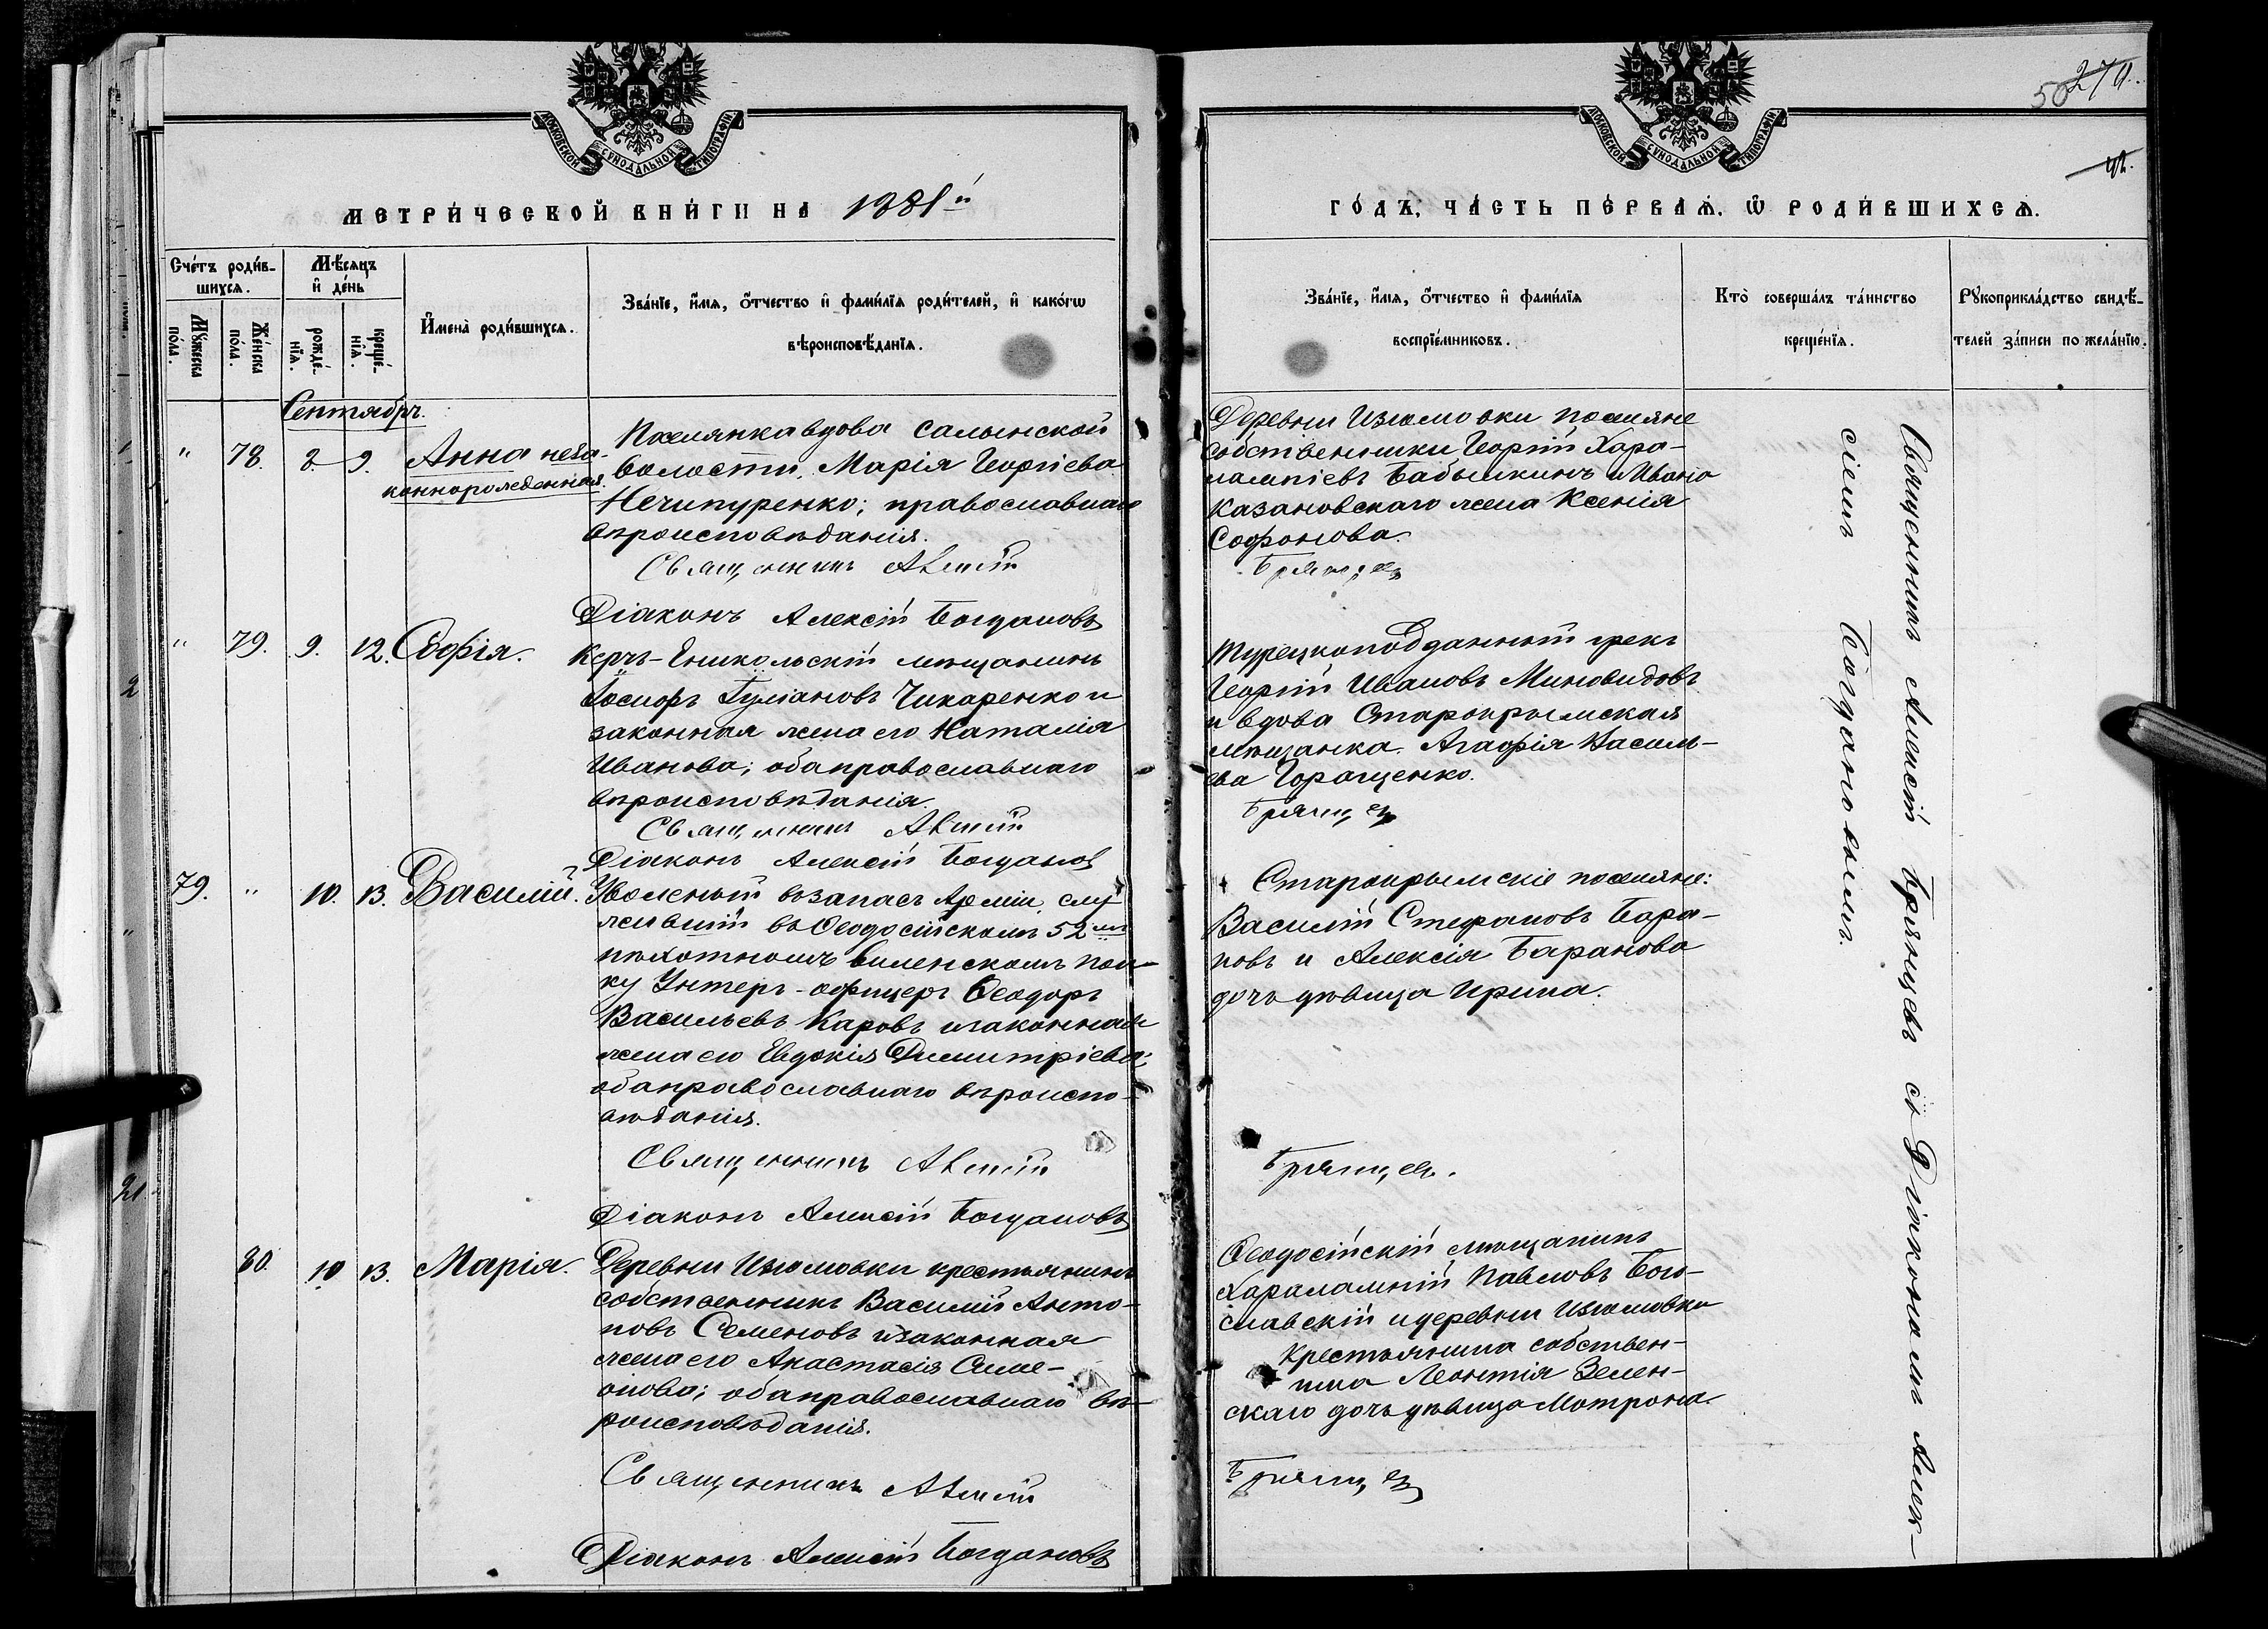 270.
50
42.
МОСКОВСКОЙ СѴНОДАЛЬНОЙ ТИПОГРАФІИ
МОСКОВСКОЙ СѴНОДАЛЬНОЙ ТИПОГРАФІИ
МЕТРИ́ЧЕСКОЙ КНИ́ГИ НА 1881й
ГО́ДЪ, ЧА́СТЬ ПЕ́РВАѦ, Ѽ РОДИ́ВШИХСѦ.
Сче́тъ роди́в-
шихсѧ.
Мѣ́сѧцъ
и҆ де́нь
Мꙋ́жеска
по́ла.
Же́нска
по́ла.
рожде́-
нїѧ.
креще́-
нїѧ.
И҆мена̀ роди́вшихсѧ.
Зва́нїе, и҆́мѧ, ѻ҆́тчество и҆ фами́лїѧ роди́телей, и҆ како́гѡ
вѣроисповѣ́данїѧ.
Зва́нїе, и҆́мѧ, ѻ҆́тчество и҆ фами́лїѧ
воспрїе́мниковъ.
Кто̀ соверша́лъ та́инство
креще́нїѧ.
Рꙋкоприкла́дство свидѣ́-
телей за́писи по жела́нїю.
Сентябрь.
" 78. 8. 9. Анна неза-
коннорожденная.
Поселянка вдова Салынской
волости, Марія Георгіева
Нечипуренко; православнаго
вѣроисповѣданія.
Священникъ Алексій
Діаконъ Алексій Богдановъ
Деревни Изюмовки поселяне
собственники Георгій Хара-
лампіевъ Бабышкинъ и Ивана
Казановскаго жена Ксенія
Софонова.
Брянцевъ
" 79. 9. 12. Софія.
Керчь-Еникольскій мѣщанинъ
Іосифъ Гуліановъ Чикаренко и
законная жена его Наталія
Иванова; оба православнаго
вѣроисповѣданія.
Священникъ Алексій
Діаконъ Алексій Богдановъ
Турецкоподданный грекъ
Георгій Ивановъ Миновидовъ
и вдова Старокрымская
мѣщанка Агафія Василь-
ева Горащенко.
Брянцевъ
79. " 10. 13. Василій.
Уволеный въ запасъ Арміи, слу-
жившій въ Ѳеодосійскомъ 52мъ
пѣхотномъ Виленскомъ пол-
ку Унтеръ-офицеръ Ѳеодоръ
Васильевъ Каровъ и законная
жена его Евдокія Димитріева;
оба православнаго вѣроиспо-
вѣданія.
Священникъ Алексій
Діаконъ Алексій Богдановъ
Старокрымскіе поселяне:
Василій Стефановъ Бара-
новъ и Алексія Баранова
дочь дѣвица Ирина.
Брянцевъ.
80. 10 13. Марія.
Деревни Изюмовки крестьянинъ
собственникъ Василій Анто-
новъ Семеновъ и законная
жена его Анастасія Симе-
онова; оба православнаго вѣ-
роисповѣданія.
Священникъ Алексій
Діаконъ Алексій Богдановъ
Ѳеодосійскій мѣщанинъ
Харалампій Павловъ Бого-
славскій и деревни Изюмовки
крестьянина собствен-
ника Леонтія Зелен-
скаго дочь дѣвица Матрона.
Брянцевъ
Священникъ Алексій Брянцевъ съ Діакономъ Алек-
сіемъ Богдановымъ.